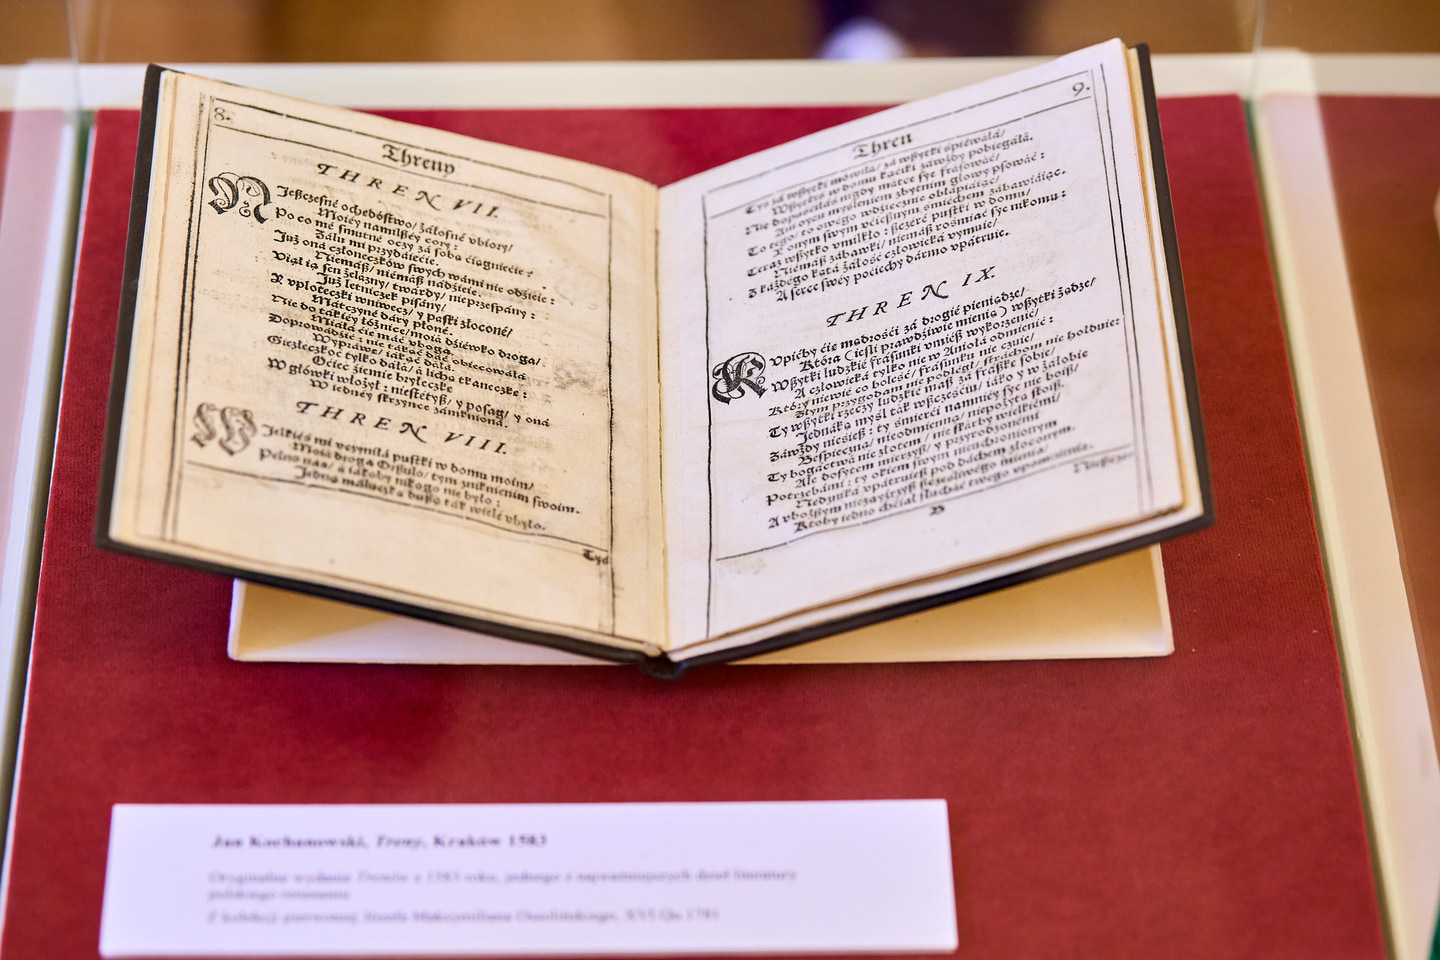 8.
Threny
THREN VII.
Nießczesne ochędóstwo/ żáłosne vbiory/
Moiéy namilßéy cory:
Po co mé smutne oczy zá sobą ciągniecie?
Żálu mi przydáiecie.
Już oná członeczków swych wámi nie odzieie:
Niemáß/ niémáß nádzieie.
Viął ią sen żelázny/ twárdy/ nieprzespány:
Już letniczek pisány/
Y vploteczki wniwecz/ y páski złocone/
Mátczyné dáry płoné.
Nie do tákiéy łóżnice/ moiá dziéwko droga/
Miáłá cię mác vboga
Doprowádzić: nie tákąć dáć obiecowáłá
Wypráwę/ iákąć dáłá.
Giezłeczkoć tylko dáłá/ á lichą tkaneczkę:
Oćiec ziemie bryłeczkę
W główki włożył: niestétyß/ y posag/ y oná
W iednéy skrzynce zámknioná.
THREN VIII.
Wielkieś mi vczyniłá pustki w domu moim/
Moiá droga Orßulo/ tym zniknieniem swoim.
Pełno nas/ á iákoby nikogo nie było:
Jedną máluczką dußą ták wiele vbyło.
Tyś
9.
Thren
Tyś zá wßytki mówiłá/ zá wßytki śpiéwáłá/
Wßytkiś w domu kąciki záwżdy pobiegáłá.
Nie dopuśćiłáś nigdy mátce sye frásowáć/
Ani oycu myśleniem zbytnim głowy psowáć:
To tego/ to owego wdzięcznie obłápiáiąc/
Y onym swym vćießnym śmiechem zábáwiáiąc.
Teraz wßytko vmilkło: ßczéré pustki w domu/
Niemáß zábáwki/ niemáß rośmiáć sye nikomu:
Z káżdego kątá żáłość człowieká vymuie/
A serce swéy pociechy dármo vpátruie.
THREN IX.
Kupićby cię mądrośći zá drogié pieniądze/
Którá (ieśli prawdziwie mienią) wßytki żądze/
Wßytki ludzkié frásunki vmiéß wykorzenić/
A człowieká tylko nie w Aniołá odmienić:
Który niewié co boleść/ frásunku nie czuie/
Złym przygodom nie podległ/ stráchom nie hołduie:
Ty wßytki rzeczy ludzkié máß zá fráßkę sobie/
Jednáką myśl ták w ßczęściu/ iáko y w żáłobie
Záwżdy niesieß: ty śmierći namniéy sye nie boiß/
Bespieczna/ nieodmienna/ niepożyta stoiß.
Ty bogáctwá nie złotem/ nie skárby wielkiémi/
Ale dosytem mierzyß/ y przyrodzonémi
Potrzebámi: ty okiem swym nieuchronionym
Nędzniká vpátruieß pod dáchem złoconym.
A vboższym niezayźrzyß ßczęśliwégo mienia/
Ktoby iedno chciał słucháć twégo vpomnienia.
B
Nießczę=
Jan Kochanowski, Treny, Kraków 1583
Oryginalne wydanie Trenów z 1583 roku, jednego z najważniejszych dzieł literatury
polskiego renesansu.
Z kolekcji pierwotnej Józefa Maksymiliana Ossolińskiego, XVI.Qu.1781